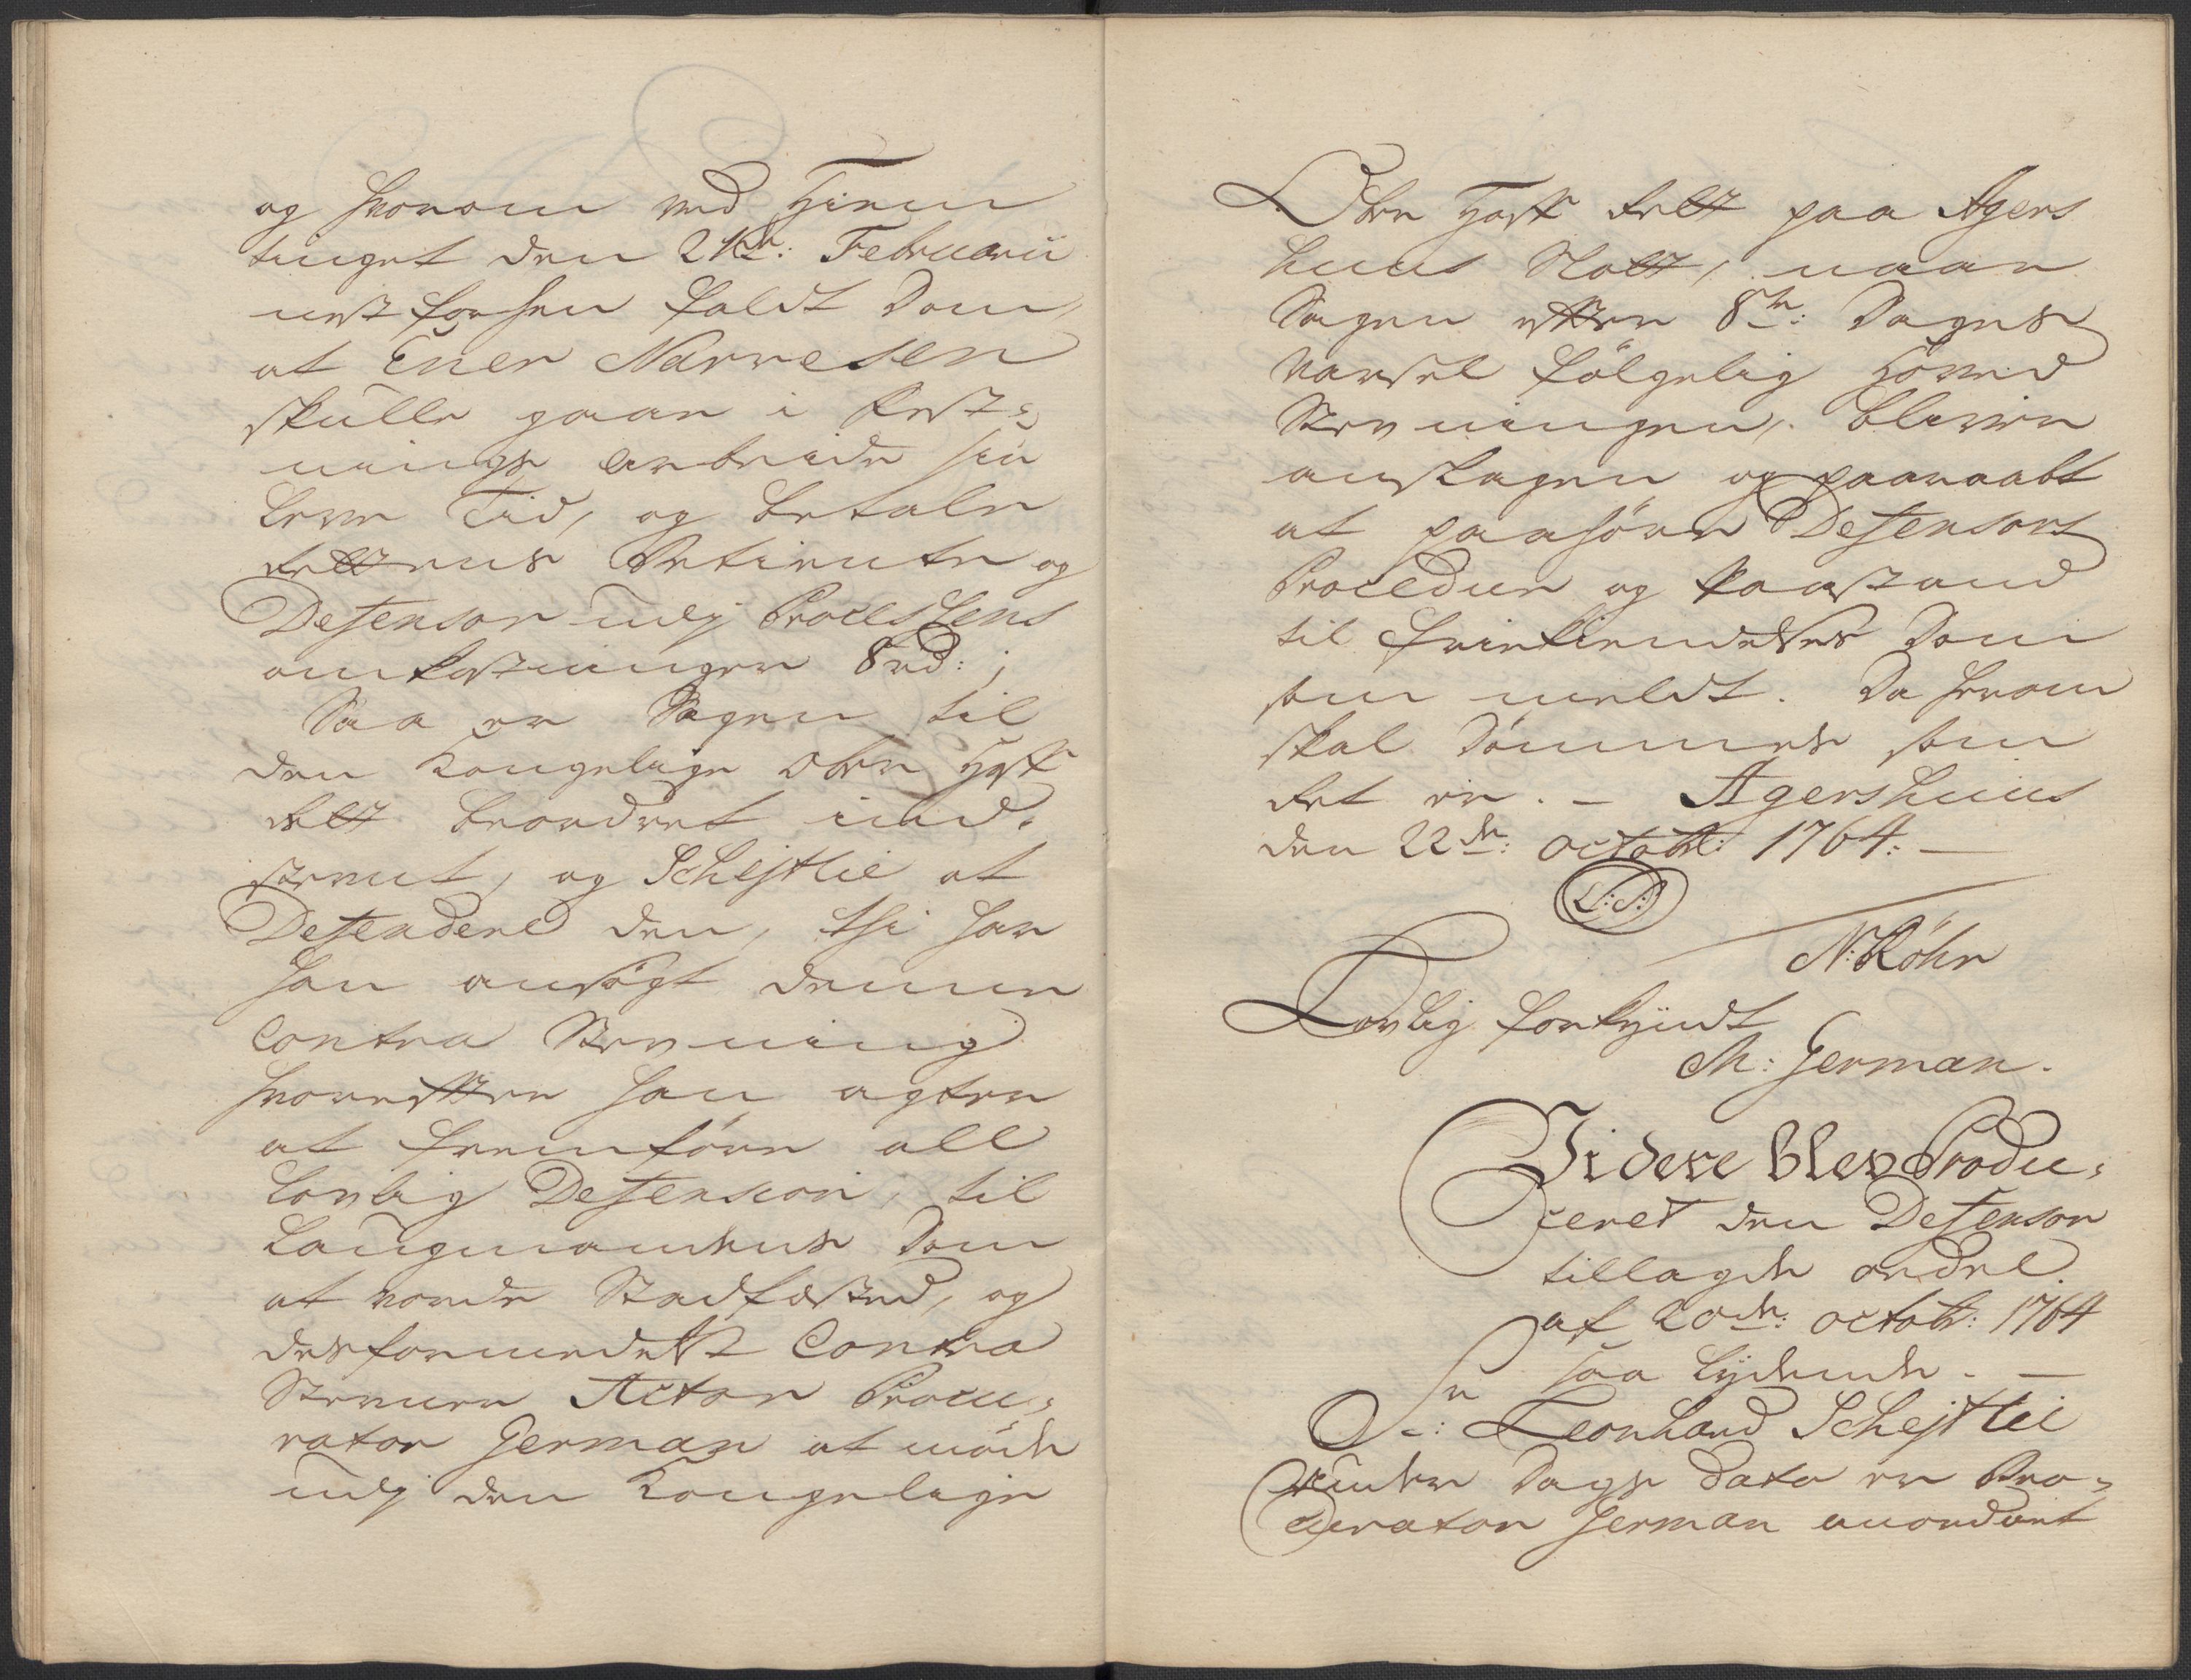 og hvorom ved Hiem
tinget den 21de: Februarii
nest forhen faldt Dom,
at Ener Narvesen
skulle gaae i Fest=
nings Arbeide sin
Leve Tid, og betale
Rettens Betiente og
Defensor udj Processens
omkostninger 8 rd: ;
Saa er Sagen til
den Kongelige Ober Hoff
Rett beordret ind=
stevnt, og Schejtlie at
Defendere den, thi har
han ansögt denne
Contra Stevning
hvorefter han agter
at fremföre all
Lovlig Defension, til
Laugmandens Dom
at vorde Stadfæsted, og
desformedelst Contra
Stevner Actor Procu=
rator German at möde
udj den Kongelige
Ober Hoff Rett paa Agers
huus Slott, naar
Sagen efter 8te: Dages
Varsel fölgelig Hoved
Stevningen, bliver
antagen og paaraabt
at paahöre Defensors
Procedur og Paastand
til Frikiendelses Dom
som meldt. Da herom
skal Dömmes som
Ret er. - Agershuus
den 22de: octobr: 1764: -
L:S:
N: Röhr
Lovlig forkyndt
M: German.
Videre blev Produ=
ceret den Defensor
tillagde ordre
af 20de: octobr: 1764
saa lydende. -
Sr: Leonhard Schejtlie
Under Dags Dato er Pro=
curator German anordnet